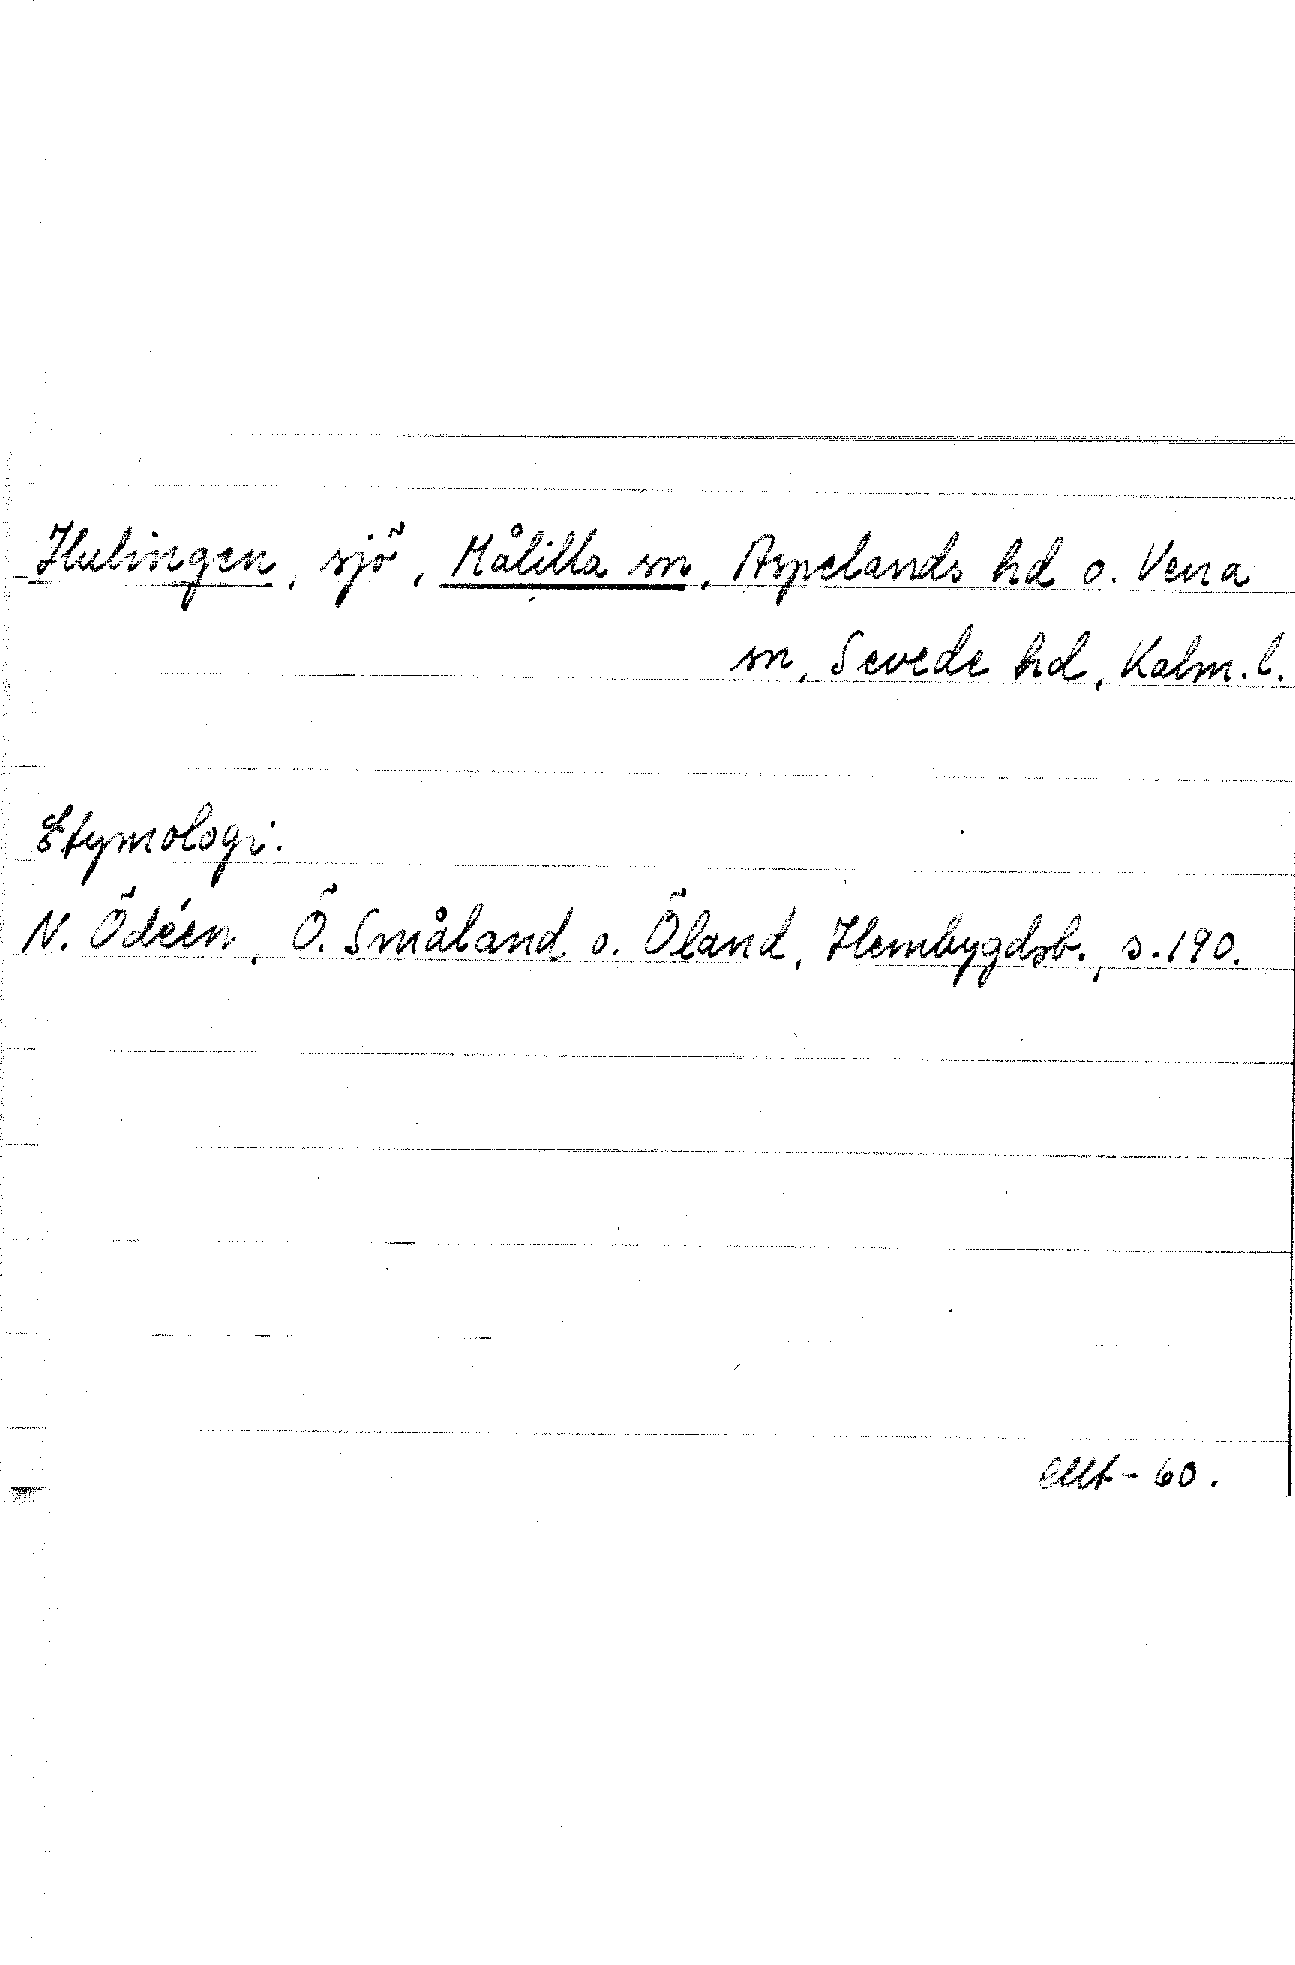 Hulingen, sjö, Målilla sn, Aspelands hd o. Vena
sn, Sevede hd, Kalm. l.
Etymologi.
N. Ödéen, Ö. Småland o. Öland, Hembygdsb., s. 190.
-60.